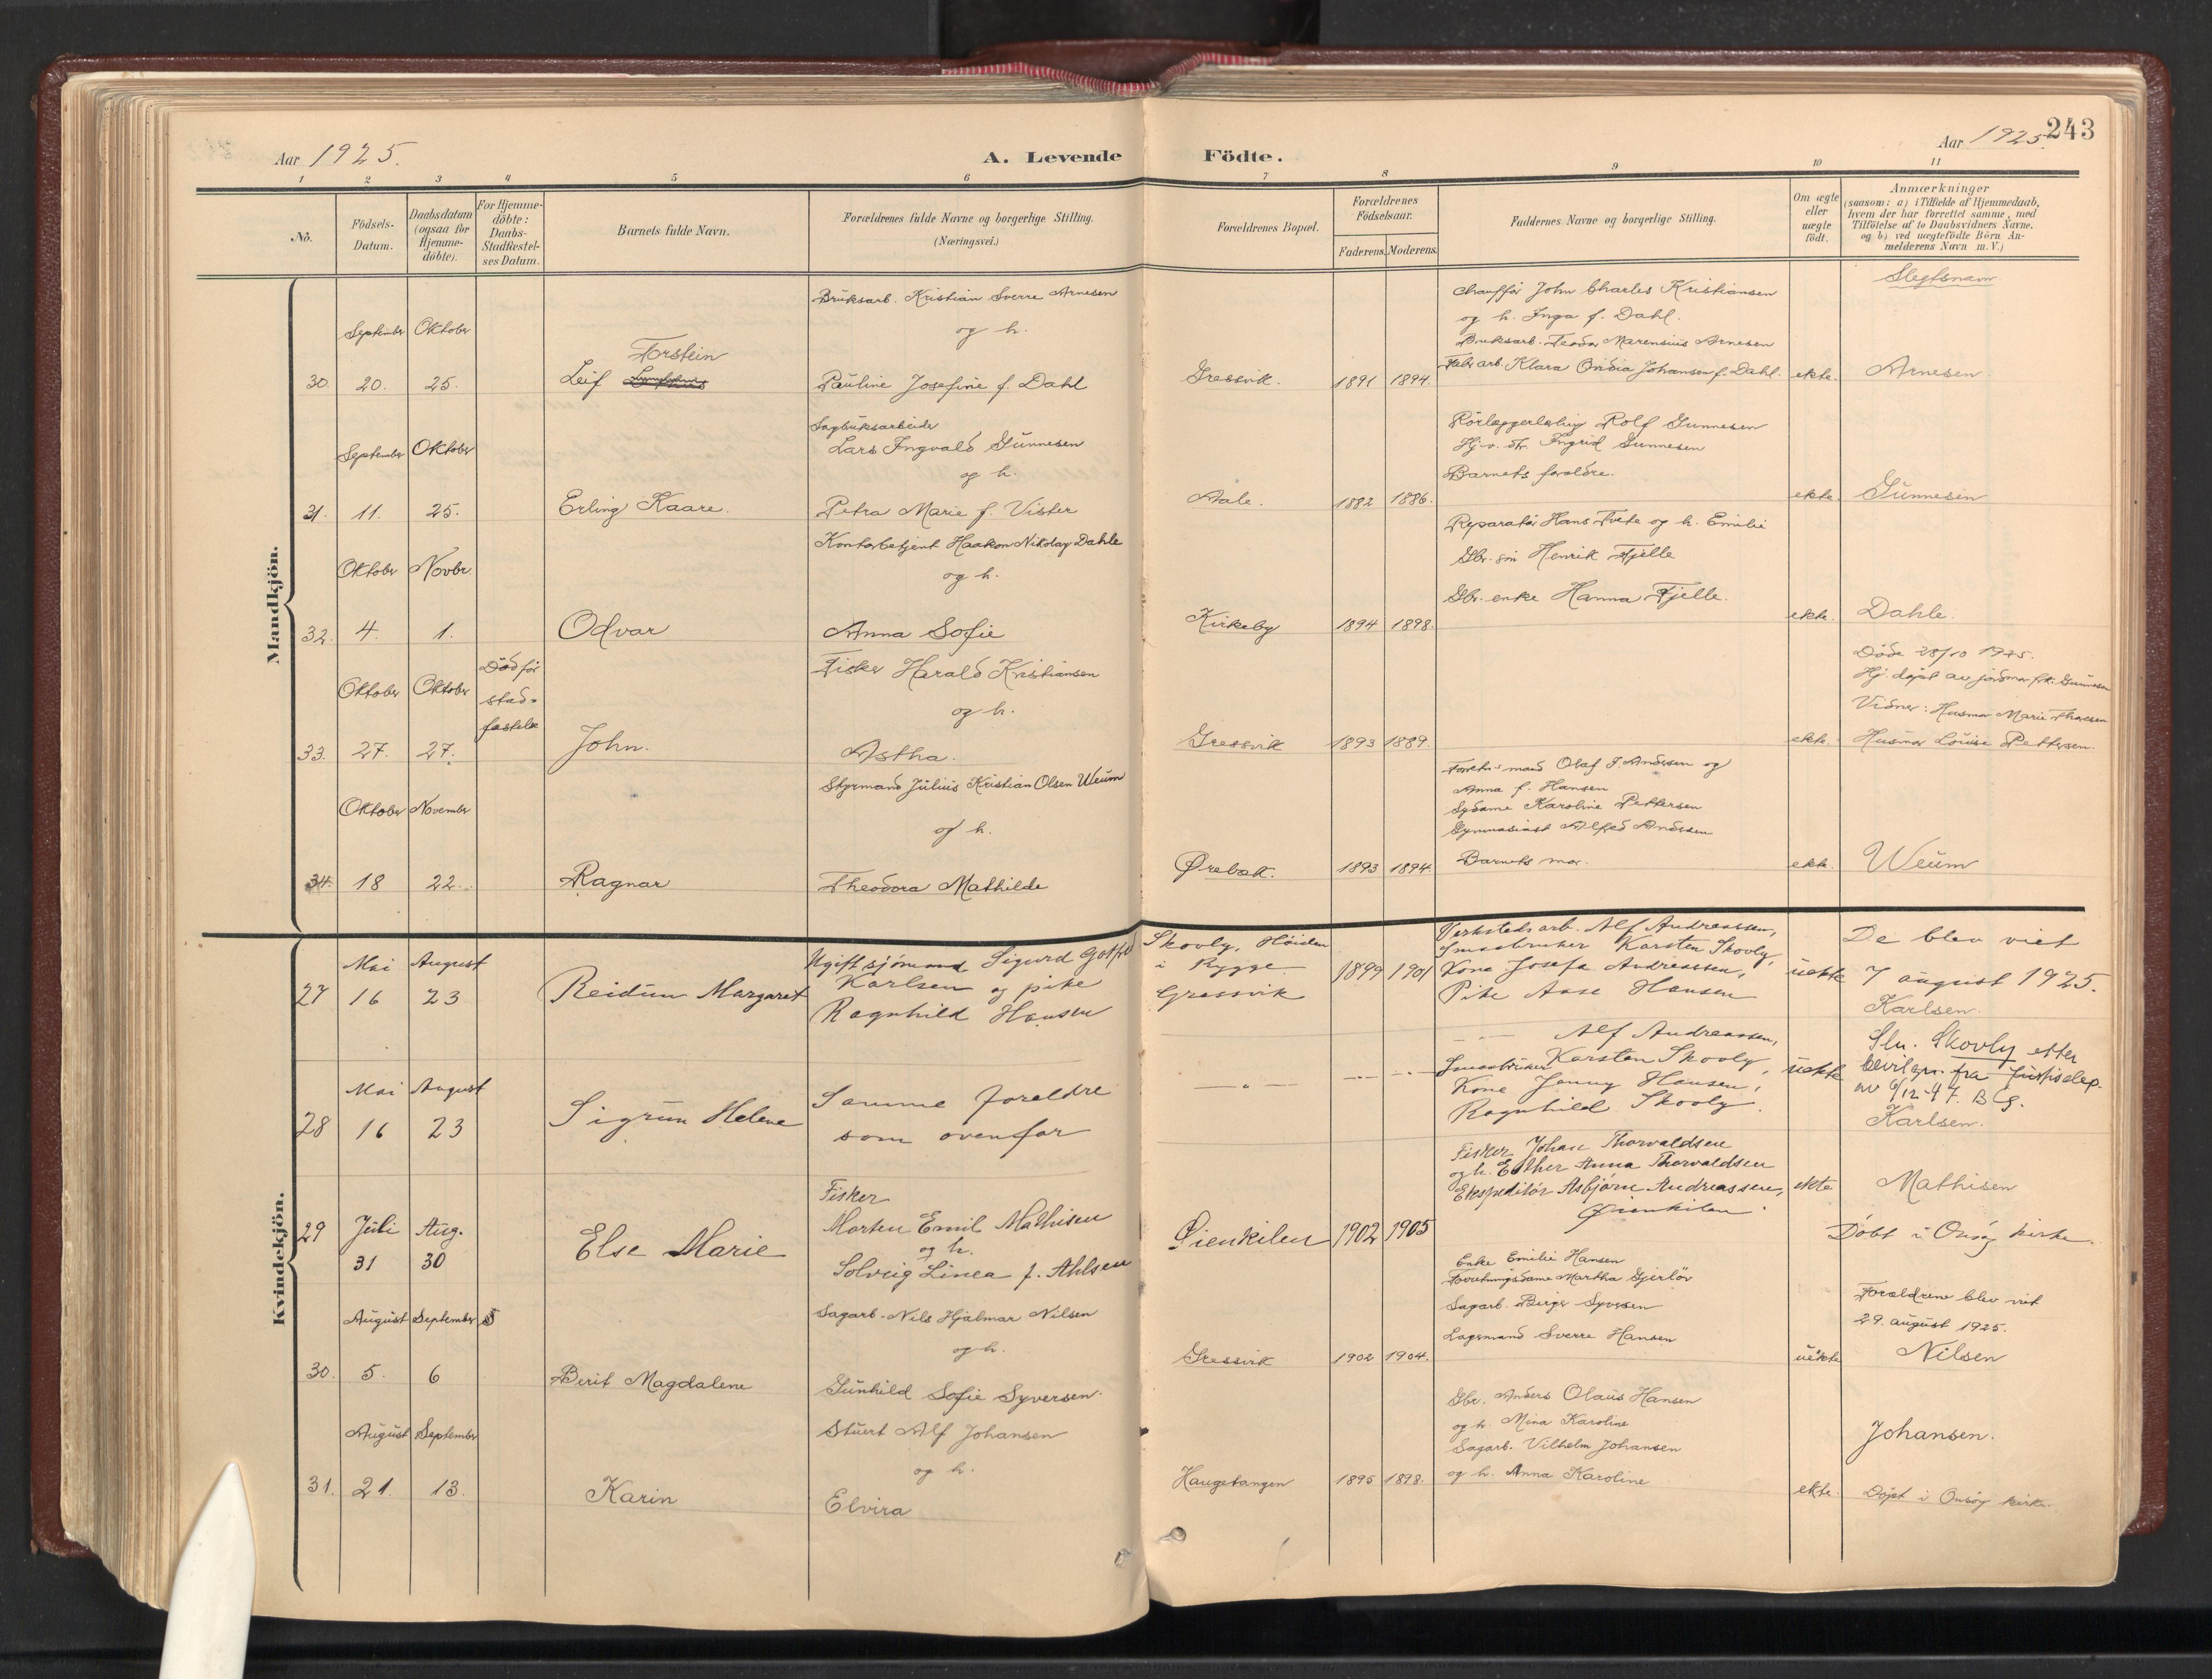 Aar 1925.
A. Levende Födte.
Aar 1925.
243
1 2 3 4 5 6 7 8 9 10 11
Nô.
Födsels-Datum.
Daabsdatum (ogsaa for Hjemme-döbte).
For Hjemme-döbte: Daabs-Stadfæstel-ses Datum.
Barnets fulde Navn.
Forældrenes fulde Navne og borgerlige Stilling.
(Næringsvei.)
Forældrenes Bopæl.
Forældrenes Födselsaar.
Faderens. Moderens.
Faddernes Navne og borgerlige Stilling.
Om ægte eller uægte födt.
Anmærkninger
(saasom: a) i Tilfælde af Hjemmedaab,
hvem der har forrettet samme, med
Tilföielse af to Daabsvidners Navne,
og b) ved uægtefödte Börn An-
melderens Navn m. V.)
Slegtsnavn
Mandkjön.
30. September 20. Oktober 25.
Leif Torstein
Bruksarb. Kristian Sverre Arnesen
og h.
Pauline Josefine f. Dahl
Gressvik. 1891 1894.
Chauffør John Charles Kristiansen
og h. Inga f. Dahl.
Bruksarb. Teodor Marensius Arnesen
Fabr arb. Klara Ovidia Johansen f. Dahl.
ekte. Arnesen.
31. September 11. Oktober 25.
Erling Kaare.
Sagbruksarbeider
Lars Ingvald Gunnesen
og h.
Petra Marie f. Vister
Aale. 1882 1886.
Rörlæggerlærling Rolf Gunnesen
Hj.v. dtr. Ingrid Gunnesen
Barnets foreldre.
ekte. Gunnesen
32. Oktober 4. Novbr. 1.
Odvar
Kontorbetjent Haakon Nikolay Dahle
og h.
Anna Sofie
Kirkeby 1894 1898.
Reparatør Hans Tvete og h. Emilie
Gbr. søn Henrik Fjelle
Gbr. enke Hanna Fjelle.
ekte. Dahle.
33. Oktober 27. Oktober 27.
Död før
stad-
festelse
John.
Fisker Harald Kristiansen
og h.
Astha.
Gressvik 1893 1889.
ekte.
Döde 28/10 1925.
Hj. døpt av jordmor frk. Gunnesen
Vidner: Husmor Marie Thoresen
Husmor Louise Pettersen.
34. Oktober 18 November 22.
Ragnar
Styrmand Julius Kristian Olsen Weum
og h.
Theodora Mathilde
Ørebæk. 1893 1894.
Forretn.mand Olaf J. Andersen og
Anna f. Hansen
Sydame Karoline Pettersen
Gymnasiast Alfred Andersen
Barnets mor.
ekte. Weum
Kvindekjön.
27 Mai 16 August 23
Reidun Margaret
Ugift sjømand Sigurd Gotfred
Karlsen og pike
Ragnhild Hansen
Skovly, Høiden
i Rygge.
Gressvik
1899 1901
Verkstedsarb. Alf Andreassen,
Smaabruker Karsten Skovly,
Kone Josefa Andreassen,
Pike Aase Hansen
uekte
De blev viet
7 august 1925.
Karlsen.
28 Mai 16 August 23
Sigrun Helene
Samme foreldre
som ovenfor
— " — — - —
— — Alf Andreassen,
Smaabruker Karsten Skovly,
Kone Jenny Hansen,
Ragnhild Skovly.
uekte
Sln. Skovly etter
bevilgn. fra Justisdep.
av 6/12-47. B.G.
Karlsen.
29 Juli 31 Aug. 30
Else Marie
Fisker
Morten Emil Mathisen
og h.
Solveig Linea f. Ahlsen
Øienkilen 1902 1905
Fisker Johan Thorvaldsen
og h. Esther Anna Thorvaldsen
Ekspeditör Asbjørn Andreassen,
Øienkilen.
ekte Mathisen
Döbt i Onsøy kirke.
30. August 5. September 6
Berit Magdalene
Sagarb. Nils Hjalmar Nilsen
og h.
Gunhild Sofie Syversen.
Gressvik 1902 1904.
Enke Emilie Hansen
Forretningsdame Martha Gjerløv
Sagarb. Birger Syversen
Lagermand Sverre Hansen
uekte
Foreldrene blev viet
29. august 1925.
Nilsen
31. August 21. September 13.
Karin
Stuert Alf Johansen
og h.
Elvira
Haugetangen 1895 1898.
Gbr. Anders Olaus Hansen
og h. Mina Karoline
Sagarb. Vilhelm Johansen
og h. Anna Karoline
ekte.
Johansen.
Døpt i Onsøy kirke.